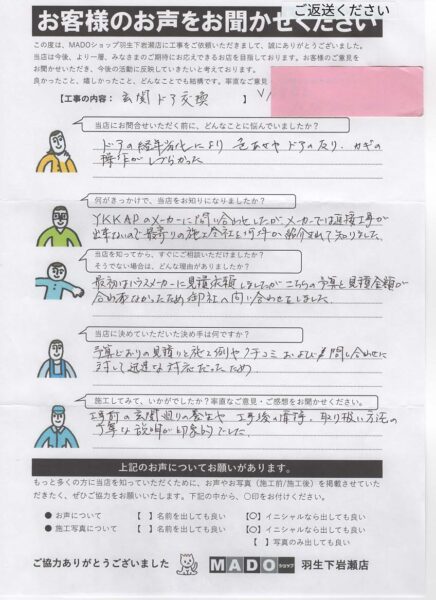 ご返送ください
お客様のお声をお聞かせください
この度は、MADOショップ羽生下岩瀬店に工事をご依頼いただきまして、誠にありがとうございました。
当店は今後、より一層、みなさまのご期待にお応えできるお店を目指しております。お客様のご意見を
お聞かせいただき、今後の活動に反映していきたいと考えております。
良かったこと、嬉しかったこと、どんなことでも結構です。率直なご意見
【工事の内容: 玄関ドア交換 】
当店にお問合せいただく前に、どんなことに悩んでいましたか?
ドアの経年劣化により 色あせや ドアの反り、カギの
操作がしづらかった
何がきっかけで、当店をお知りになりましたか?
YKKAPのメーカーに問い合わせしたが、メーカーでは直接工事が
出来ないので最寄りの施工会社を何件か紹介されて知りました。
当店を知ってから、すぐにご相談いただけましたか?
そうでない場合は、どんな理由がありましたか?
最初はハウスメーカーに見積依頼しましたがこちらの予算と見積金額が
合わなかったため御社へ問い合わせをしました。
当店に決めていただいた決め手は何ですか?
予算どおりの見積りと施工例やクチコミ および 問い合わせに
対して迅速な対応だったため
施工してみて、いかがでしたか?率直なご意見・ご感想をお聞かせください。
工事前の玄関廻りの養生や 工事後の清掃、取り扱い方法の
丁寧な説明が印象的でした。
上記のお声についてお願いがあります。
もっと多くの方に当店を知っていただくために、お声やお写真(施工前/施工後)を掲載させていた
だきたく、ぜひご協力をお願いいたします。下記の中から、〇印をお付けください。
● お声について 【 】名前を出しても良い 【〇】イニシャルなら出しても良い
● 施工写真について 【 】名前を出しても良い 【〇】イニシャルなら出しても良い
【 】写真のみ出しても良い
ご協力ありがとうございました MADOショップ 羽生下岩瀬店